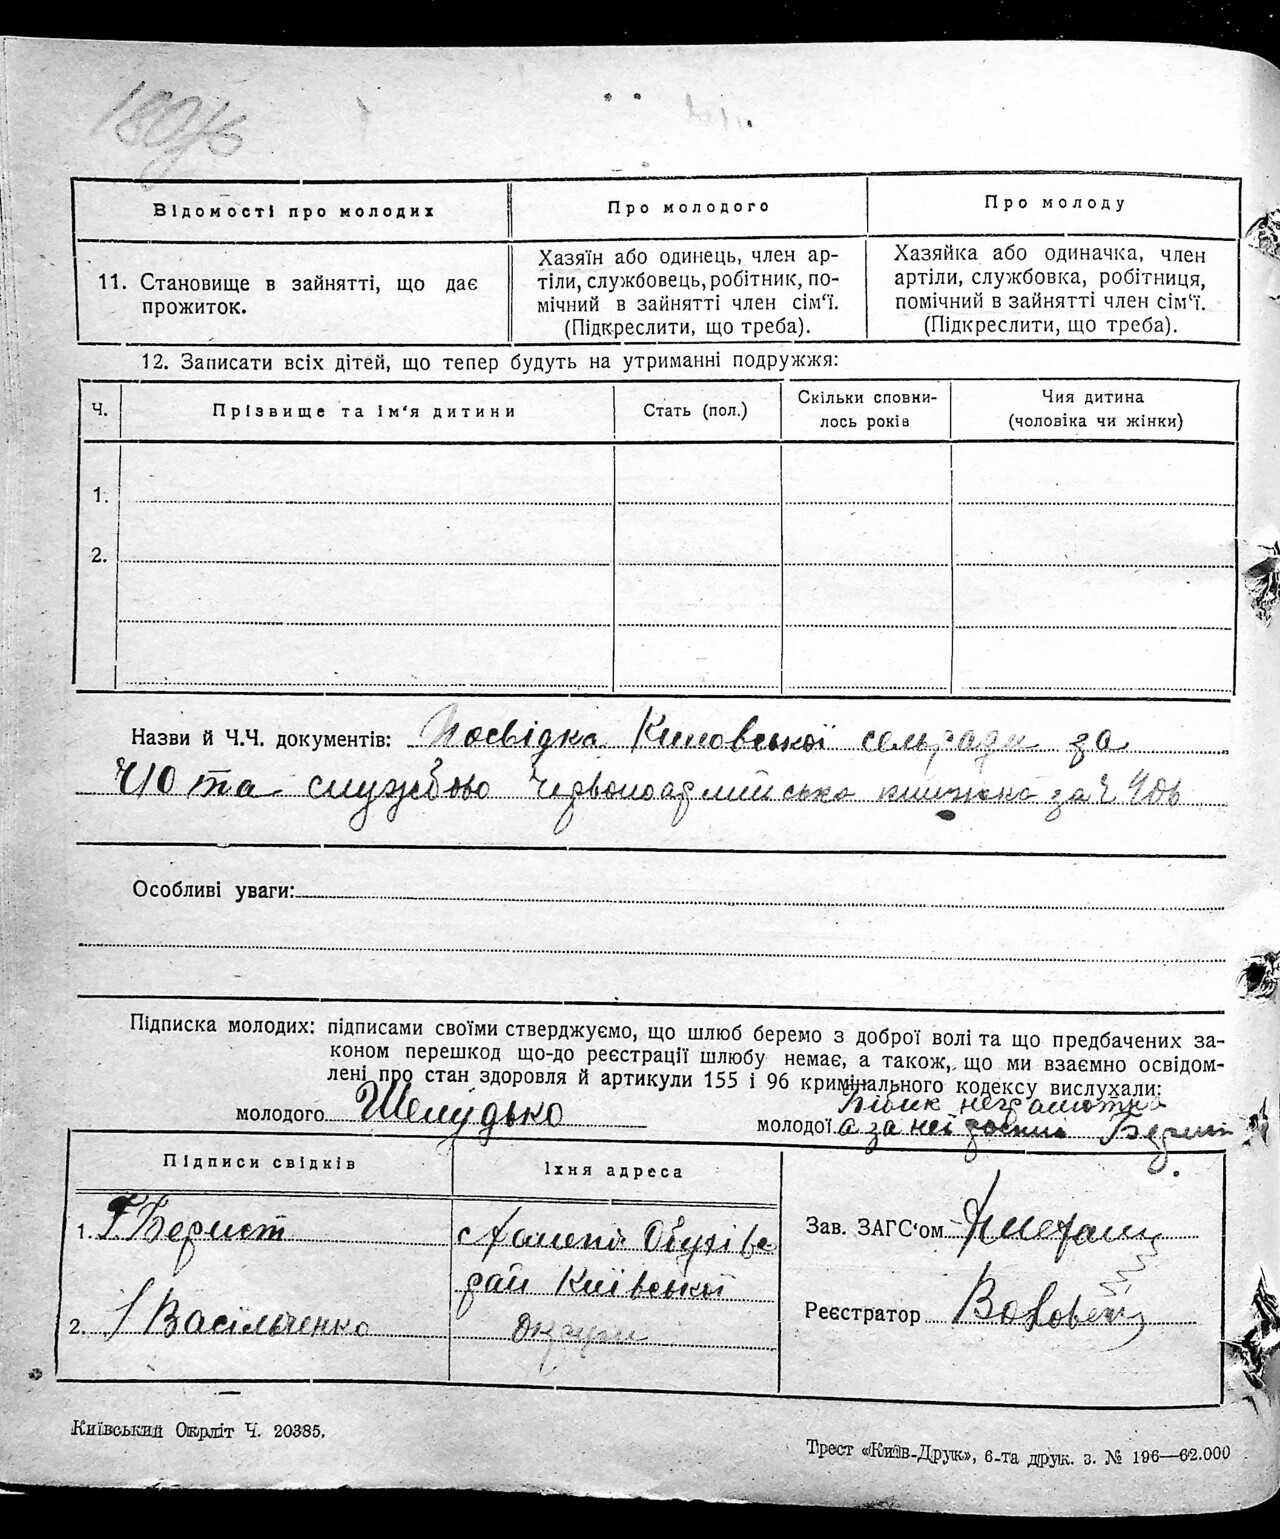 180/б
Відомості про молодих
Про молодого
Про молоду
11. Становище в зайнятті, що дає
прожиток.
Хазяїн або одинець, член ар-
тіли, службовець, робітник, по-
мічний в зайнятті член сім'ї.
(Підкреслити, що треба).
Хазяйка або одиначка, член
артіли, службовка, робітниця,
помічний в зайнятті член сім'ї.
(Підкреслити, що треба).
12. Записати всіх дітей, що тепер будуть на утриманні подружжя:
Ч.
Прізвище та ім'я дитини
Стать (пол.)
Скільки сповни-
лось років
Чия дитина
(чоловіка чи жінки)
1.
2.
Назви й Ч.Ч. документів: Посвідка сельради за
Ч10 та службово червоноармійська книжка за Ч 406
Особливі уваги:
Підписка молодих: підписами своїми стверджуємо, що шлюб беремо з доброї волі та що предбачених за-
коном перешкод що-до реєстрації шлюбу немає, а також, що ми взаємно освідом-
лені про стан здоровля й артикули 155 і 96 кримінального кодексу вислухали:
молодого Шелудько
Бібик неграмотна
молодої а за неї
Підписи свідків
Їхня адреса
1. Г Берист
с Обухівс
рай Київської
2. Васільченко
округи
Зав. ЗАГС'ом
Реєстратор
Київський Окрліт Ч. 20385.
Трест «Київ-Друк», 6-та друк. з. № 196—62.000